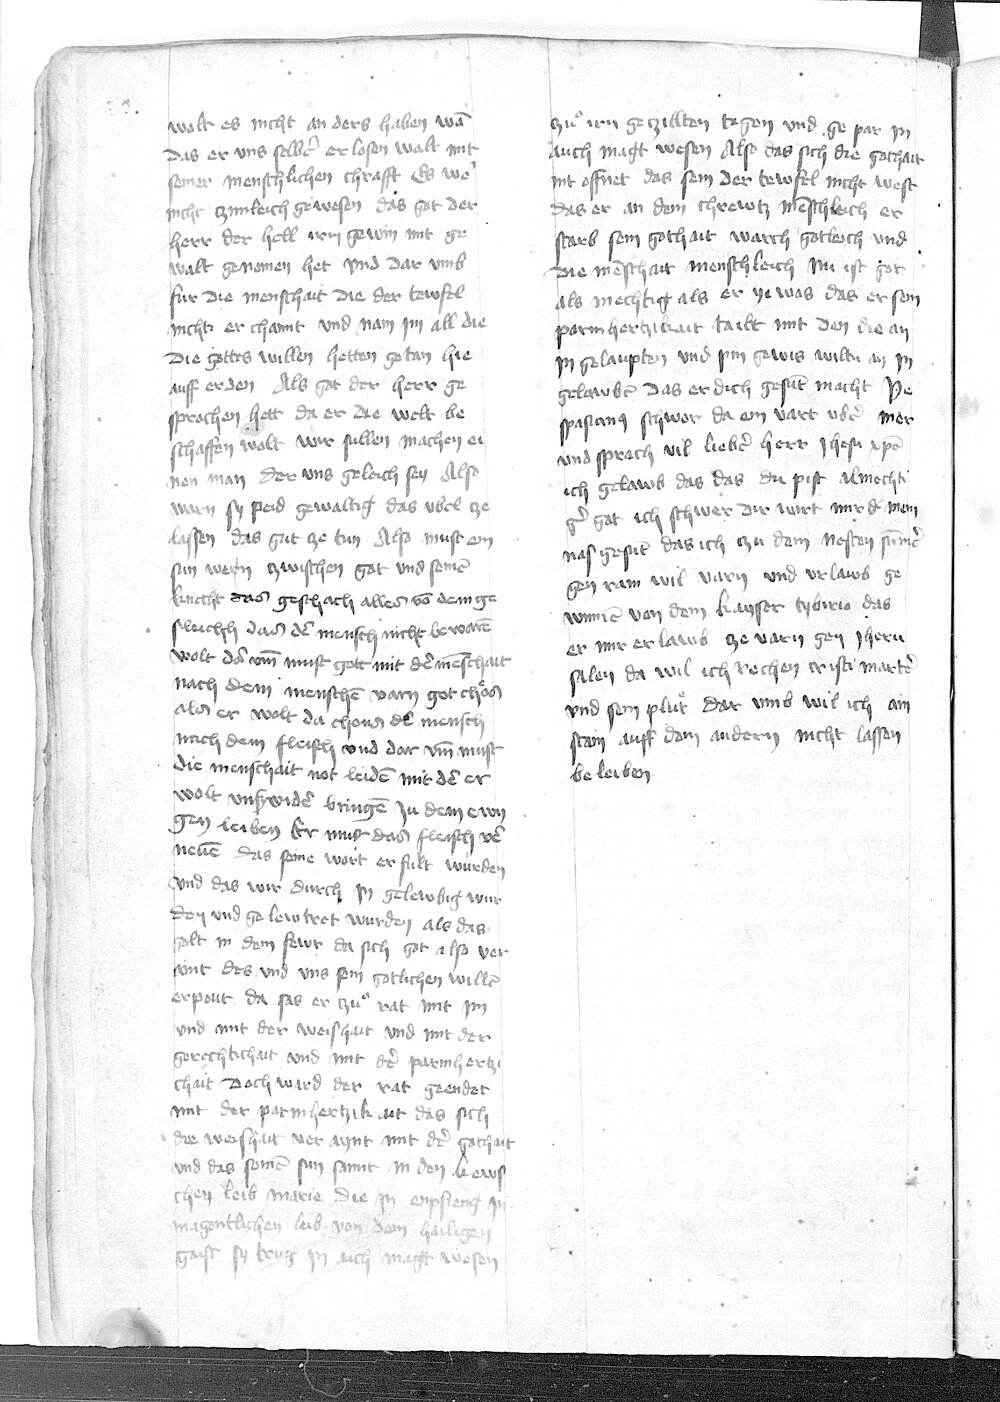 wolt es nicht an ders haben wā
das er uns selb̄ er losen wolt mit
seiner menschlichen chrafft Es we͛
nicht czimleich gewesen das got der
herr der hell irn gewin mit ge
walt genomen het Vnd dar vmb
fur die menschait die der tewfel
nicht er channt vnd nam jm all die
die gottes willen hetten getan hie
auff erden Als got der herr ge
sprochen hett da er die welt be
schaffen wolt wir sullen machen ei
nen man der uns geleich sey Also
warn sy peid gewaltig das vbel ze
lassen das gut ze tun Also must ein
sun wern zwischen got vnd seinē
knecht das geschach alles vō dem ge
sleichh das d̄ mensch nicht bewarē
wolt dar vm̄ must gott mit d̄ mēschait
nach dem menschē varn got
als er wolt da chous d̄ mensch
nach dem fleisch vnd dar vm̄ must
die menschait not leidē mit d̄ er
wolt vns widē bringē zu dem ewi
gen leiben Er must das fleisch v̄
neuē das seine wort er fult wurden
vnd das wir durch jn gelewbig wur
den vnd ge lewtret wurden als das
golt in dem fewr da sich got also ver
aint des vnd uns sein gotlichen willē
erpout da sas er zuͦ rat mit jm
vnd mit der weishait vnd mit der
gerechtichait vnd mit d͛ parmhertzi
chait Doch ward der rat geendet
mit der parmhertzik ait das sich
die weishait ver aynt mit d͛ gothait
vnd das seinē sun sannt in den kews
chen leib marie die jn enpfieng jn
magentlichen leib von dem heiligen
gaist sy trug jn auch magt wesen
zuͦ irn geczillten tagen vnd ge par jn
auch magt wesen Also das sich die gothait
nit offnet das sein der tewfel nicht west
das er an dem chrewtz mēschleich er
starb sein gothait warch gotleich vnd
die mēschait menschleich Nu ist got
als mechtig als er ye was das er sein
parmhertzikait tailt mit den die an
jn gelaupten vnd pin gewis wiltu an jn
gelawbē das er dich gesūt macht Ve
spasianꝰ schwor da ein vart vb͛ mer
vnd sprach vil lieb͛ herr Jhesu xpē
ich gelawb das das du pist almechti
g͛ got ich schwer dir wirt mir d͛ mein
nas gesūt das ich czu dem nesten
gen ram wil varn vnd vrlawb ge
winnē von dem kayser tybrio das
er mir erlawb ze varn gen jheru
salem da wil ich rechen cristi mart͛
vnd sein pluͦt dar vmb wil ich ain
stain auff dem andern nicht lassen
be leiben